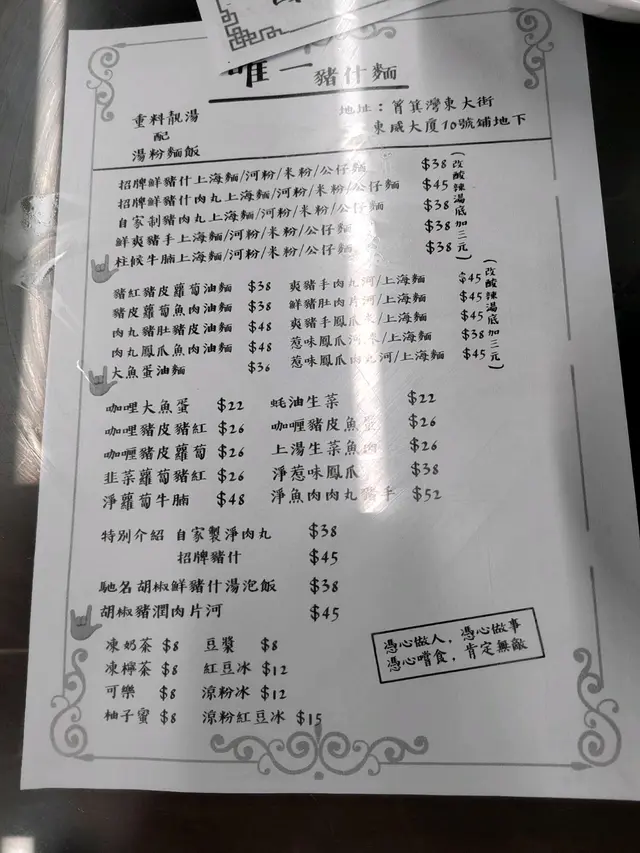 唯一豬什麵
重料靚湯
配
湯粉麵飯
地址：筲箕灣東大街
東威大廈10號鋪地下
招牌鮮豬什上海麵/河粉/米粉/公仔麵 $38
招牌鮮豬什肉丸上海麵/河粉/米粉/公仔麵 $45
自家制豬肉丸上海麵/河粉/米粉/公仔麵 $38
鮮爽豬手上海麵/河粉/米粉/公仔麵 $38
柱候牛腩上海麵/河粉/米粉/公仔麵 $38
(改酸辣湯底加三元)
豬紅豬皮蘿蔔油麵 $38 爽豬手肉丸河/上海麵 $45
豬皮蘿蔔魚肉油麵 $38 鮮豬肚肉片河/上海麵 $45
肉丸豬肚豬皮油麵 $48 爽豬手鳳爪米/上海麵 $45
肉丸鳳爪魚肉油麵 $48 惹味鳳爪河米/上海麵 $38
大魚蛋油麵 $36 惹味鳳爪肉丸河/上海麵 $45
(改酸辣湯底加三元)
咖哩大魚蛋 $22 蚝油生菜 $22
咖哩豬皮豬紅 $26 咖喱豬皮魚蛋 $26
咖喱豬皮蘿蔔 $26 上湯生菜魚肉 $26
韭菜蘿蔔豬紅 $26 淨惹味鳳爪 $38
淨蘿蔔牛腩 $48 淨魚肉肉丸豬手 $52
特別介紹 自家製淨肉丸 $38
招牌豬什 $45
馳名胡椒鮮豬什湯泡飯 $38
胡椒豬潤肉片河 $45
凍奶茶 $8 豆漿 $8
凍檸茶 $8 紅豆冰 $12
可樂 $8 涼粉冰 $12
柚子蜜 $8 涼粉紅豆冰 $15
憑心做人，憑心做事
憑心嚐食，肯定無敵